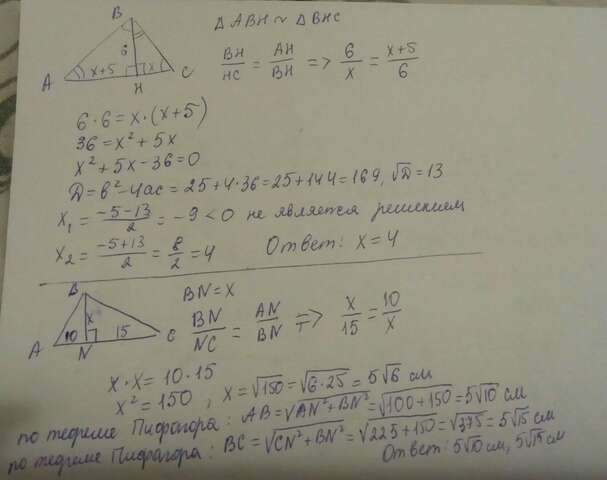 B
Δ ABH ~ Δ BHC
6
A x+5 x C
H
BH/HC = AH/BH => 6/x = x+5/6
6·6 = x·(x+5)
36 = x² + 5x
x² + 5x - 36 = 0
D = b² - 4ac = 25 + 4·36 = 25 + 144 = 169, √D = 13
x₁ = -5-13/2 = -9 < 0 не является решением
x₂ = -5+13/2 = 8/2 = 4 Ответ: x = 4
B
BN = x
x
A 10 15 C
N
BN/NC = AN/BN => x/15 = 10/x
x·x = 10·15
x² = 150, x = √150 = √6·25 = 5√6 см
по теореме Пифагора: AB = √AN² + BN² = √100+150 = 5√10 см
по теореме Пифагора: BC = √CN² + BN² = √225+150 = √375 = 5√15 см
Ответ: 5√10 см, 5√15 см